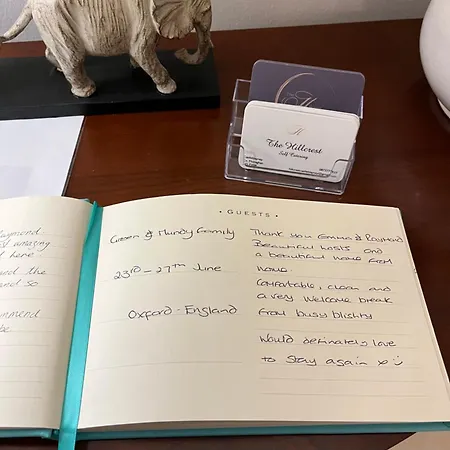 aymond
amazing
here
and the
and so
ommend
be
• GUESTS •
Green & Mundy Family
23RD - 27TH June
Oxford - England
Thank you Emma & Raymond
Beautiful hosts and
a beautiful home from
home.
Comfortable, clean and
a very welcome break
from busy blighty
Would definately love
to stay again x
H
The Hillcrest
Self Catering